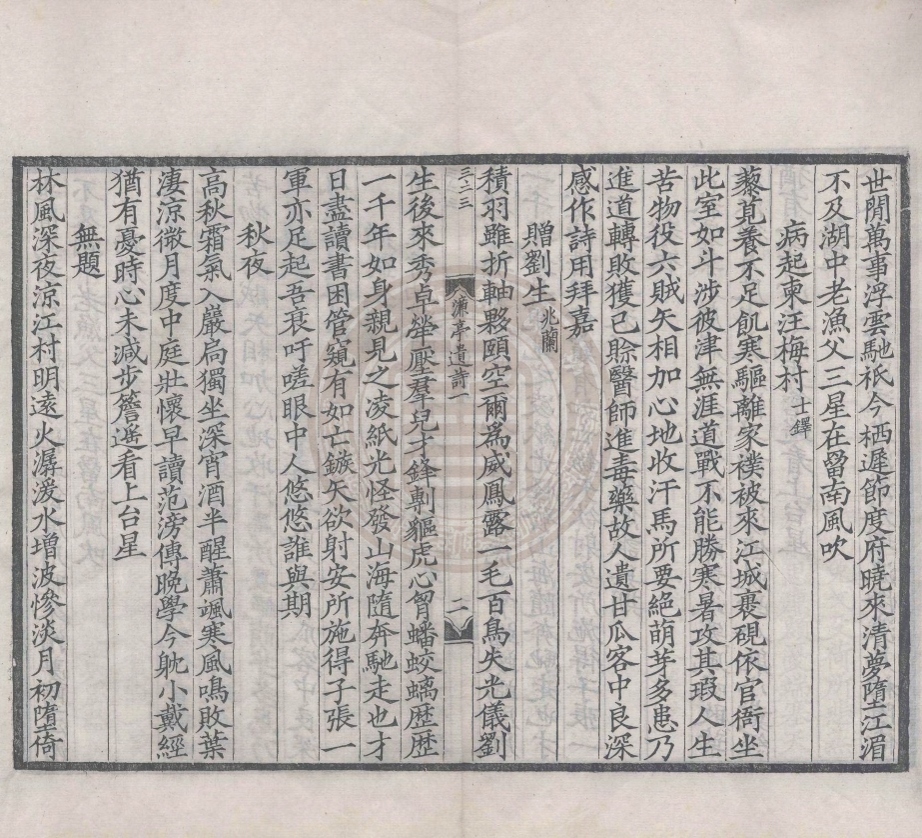 世閒萬事浮雲馳祇今栖遲節度府曉來清夢墮江湄
不及湖中老漁父三星在罶南風吹
病起柬汪梅村士鐸
藜莧養不足飢寒驅離家襆被來江城裹硯依官衙坐
此室如斗涉彼津無涯道戰不能勝寒暑攻其瑕人生
苦物役六賊矢相加心地收汗馬所要絕萌芽多恚乃
進道轉敗獲已賒醫師進毒藥故人遺甘瓜客中良深
感作詩用拜嘉
贈劉生兆蘭
積羽雖折軸夥頤空爾爲威鳳露一毛百鳥失光儀劉
三·二三
濂亭遺詩一
二
生後來秀卓犖壓羣兒才鋒剸軀虎心胷蟠蛟螭歷歷
一千年如身親見之凌紙光怪發山海隨奔馳走也才
日盡讀書困管窺有如亡鏃矢欲射安所施得子張一
軍亦足起吾衰吁嗟眼中人悠悠誰與期
秋夜
高秋霜氣入嚴扃獨坐深宵酒半醒蕭颯寒風鳴敗葉
淒涼微月度中庭壯懷早讀范滂傳晚學今躭小戴經
猶有憂時心未減步簷遙看上台星
無題
林風深夜涼江村明遠火潺湲水增波慘淡月初墮倚